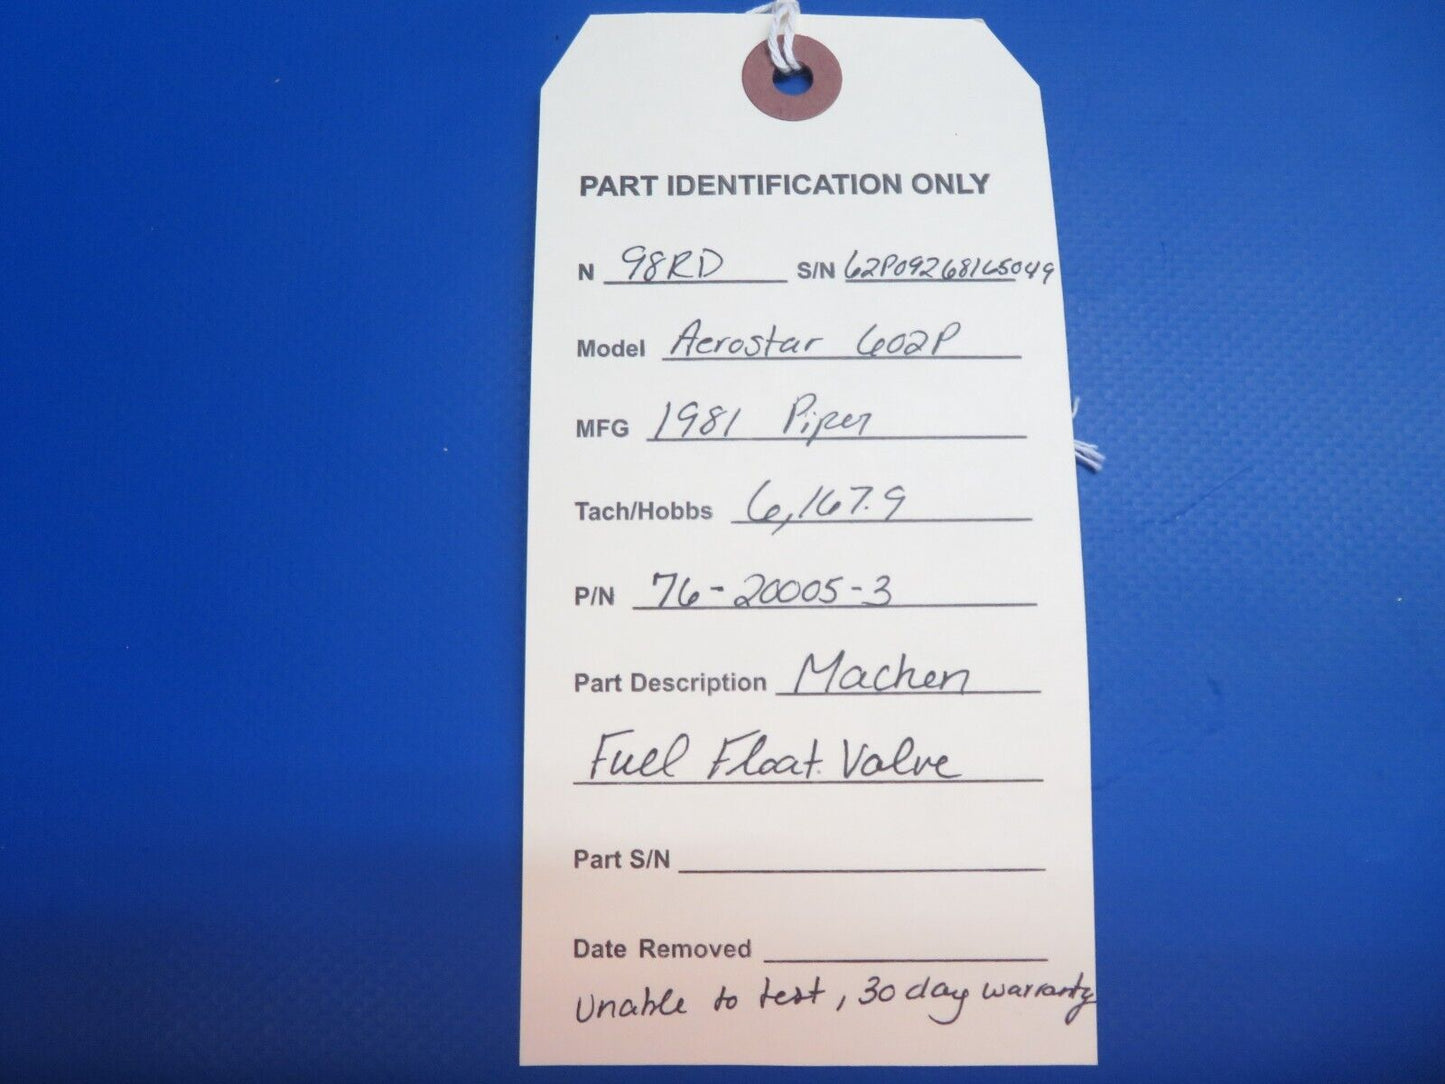 PART IDENTIFICATION ONLY
N 98RD S/N 62P09268165049
Model Aerostar 602P
MFG 1981 Piper
Tach/Hobbs 6,167.9
P/N 76-20005-3
Part Description Machen
Fuel Float Valve
Part S/N
Date Removed
Unable to test, 30 day warranty